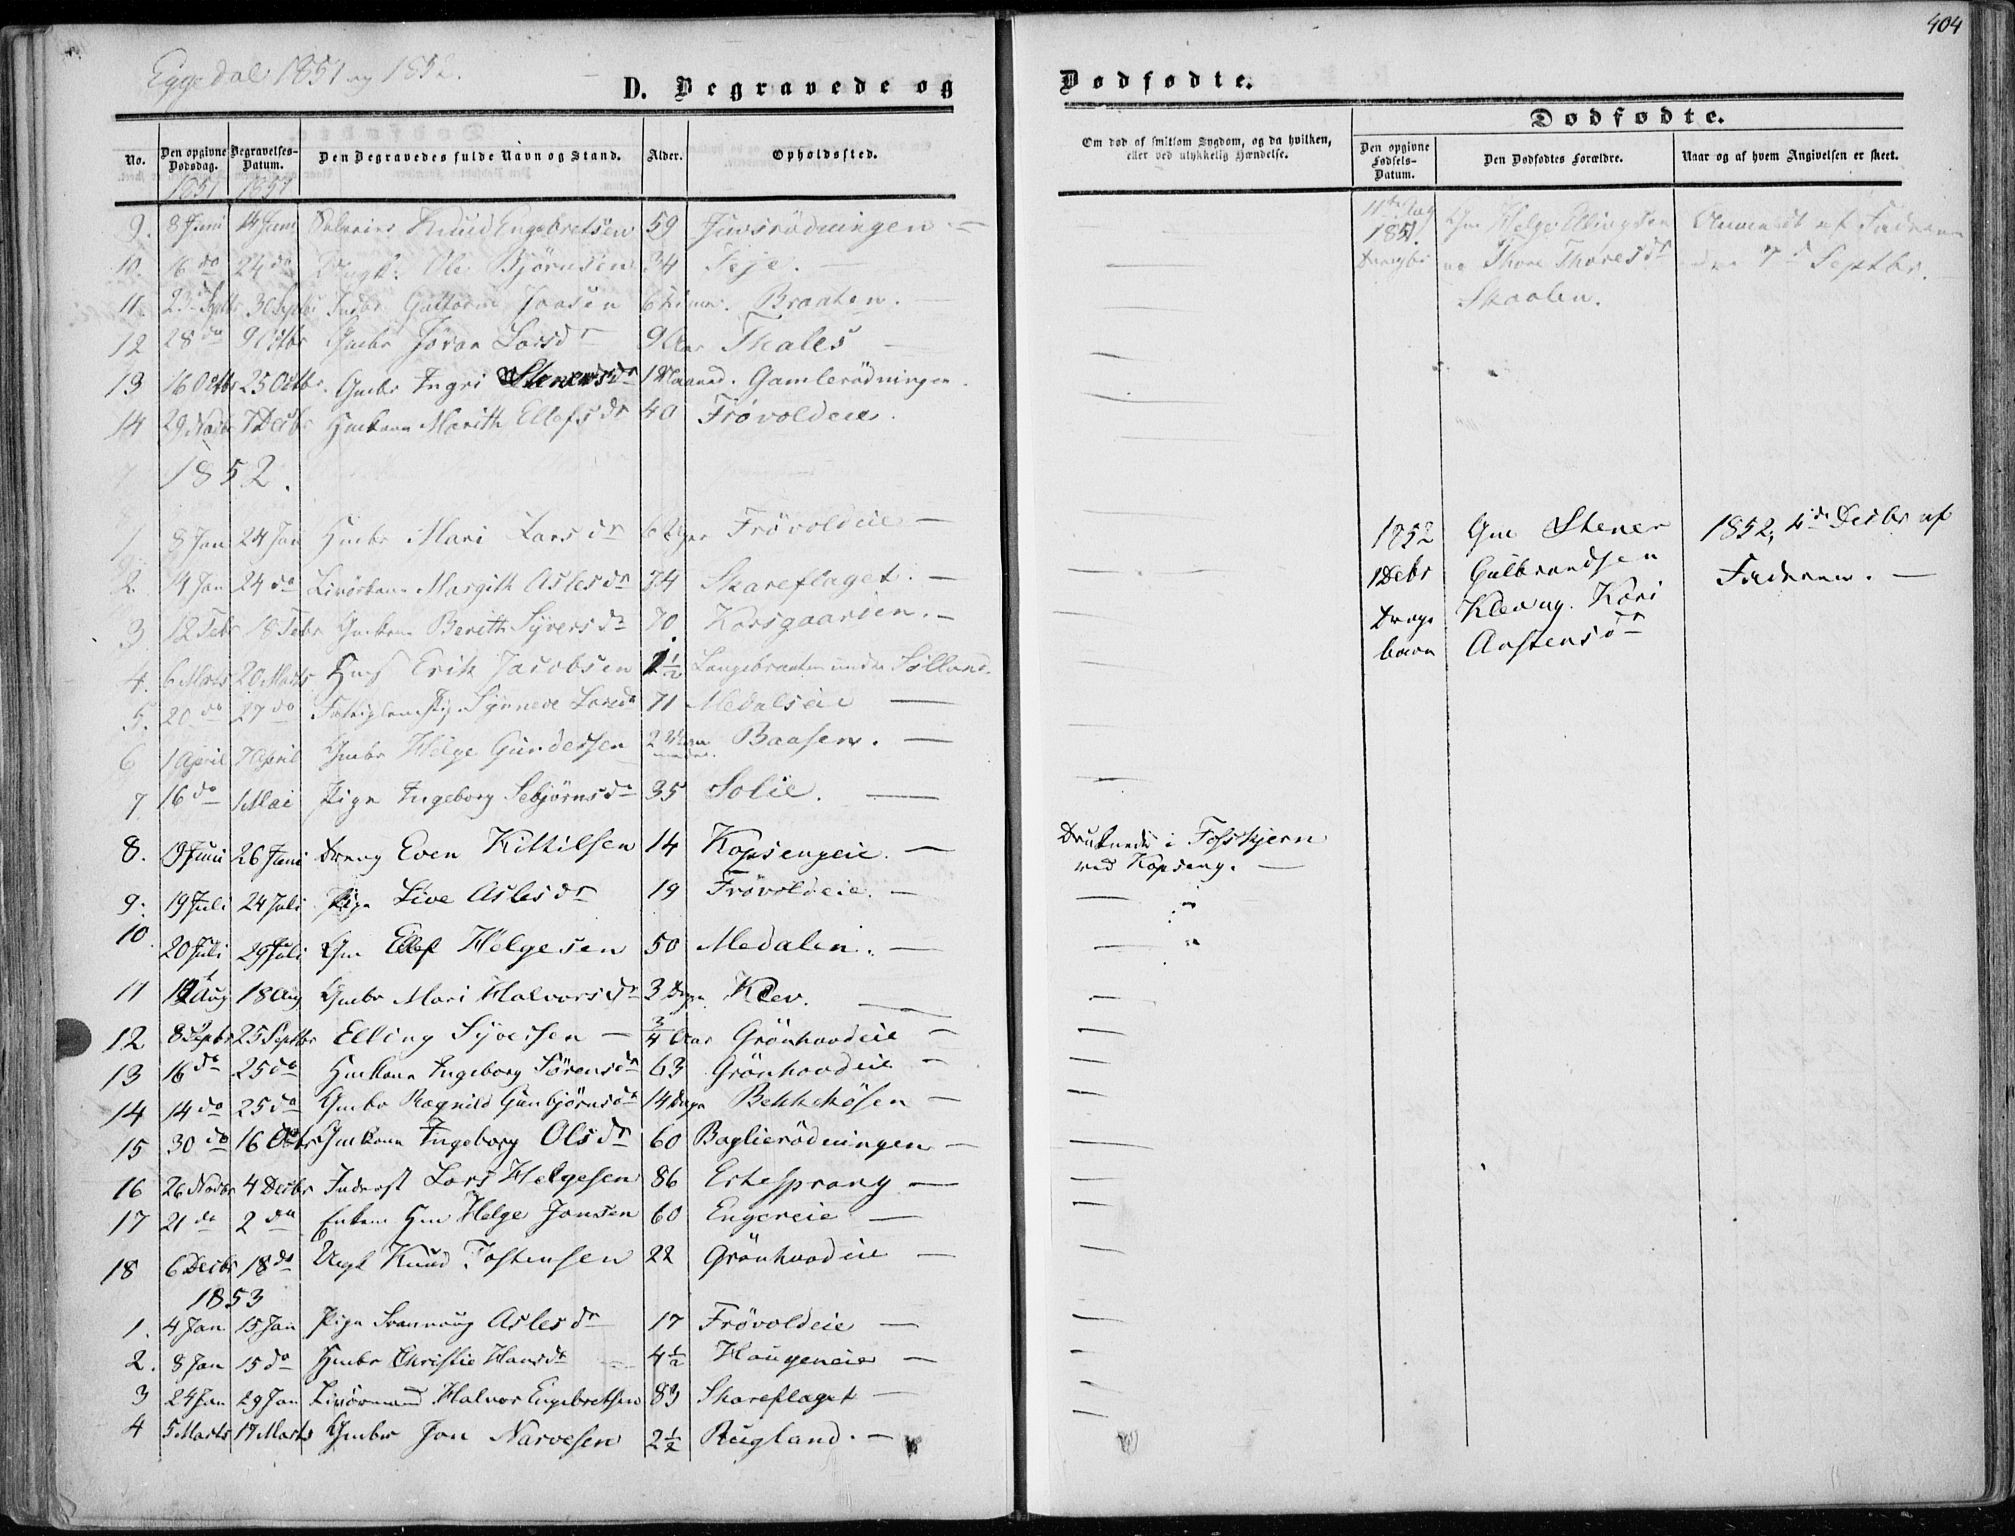 404
Eggedal 1851 og 1852.
D. Begravede og Dødfødte.
No. Den opgivne Dødsdag. Begravelses-Datum. Den Begravedes fulde Navn og Stand. Alder. Opholdssted.
Om død af smitsom Sygdom, og da hvilken, eller ved ulykkelig Hændelse.
Dødfødte.
Den opgivne Fødsels-Datum. Den Dødfødtes Forældre. Naar og af hvem Angivelsen er skeet.
1851 1851
9. 8 Juni 14 Juni Knud Engebretsen 59 Juvsrödningen —
10. 16 do 24 do Ungk. Ole Björnsen 34 Teje. —
11. 23 Septbr 30 Septbr Guttorm Joasen 6 Braaten. —
12 28 do 9 Octbr Gmbr Jöran Larsdr 9 Aar Thales —
13 16 Octbr 25 Octbr. Gmbr Ingri Stenersdr 1 Maaned. Gamlerödningen.
14 29 Novbr 7 Decbr Hmkone Marith Ellefsdr 40 Frövoldeie.
1852.
1. 8 Jan 24 Jan Hmbr Mari Larsdr 6 Uger Frövoldeie —
2. 14 Jan 24 do Livörkone Margith Aslesdr 74 Skareflaget. —
3 12 Febr 18 Febr Gmkone Berith Syversdr 70 Korsgaarden. —
4. 6 Marts 20 Marts Erik Jacobsen 1½ Langebraaten under Sölland.
5. 20 do 27 do Synneve Larsdr 71 Medalseie —
6 1 April 7 April Gmbr Helge Gundersen 2 Baasen. —
7 16 do 1 Mai Pige Ingeborg Sebjörnsdr 35 Solie. —
8. 9 Juni 26 Juni Dreng Even Kittilsen 14 Kopsengeie. — Druknede i Fosskjern
ved Kopseng. —
9. 19 Juli 24 Juli Pige Live Aslesdr 19 Frövoldeie. —
10. 20 Juli 29 Juli Gm Ellef Helgesen 50 Medalen. —
11 12 Aug 18 Aug Gmbr Mari Halvorsdr 3 Dage Klev. —
12 8 Septbr 25 Septbr Elling Syversen — ¾ Aar Grönhovdeie —
13 16 do 25 do Hmkone Ingeborg Sörensdr 63 Grönhovdeie —
14 14 do 25 do Gmbr Ragnild Gunbjörnsdr 14 Dage Bekkehösen —
15 30 do 16 Octbr Gmkone Ingeborg Olsdr 60 Boglierödningen —
16 26 Novbr 4 Decbr Inderst Lars Helgesen 86 Ertesprang —
17 21 do 2 do Enkem Hm Helge Jonsen 60 Engereie —
18 6 Decbr 18 do Ungk Knud Tostensen 22 Grönhovdeie —
1853
1. 4 Jan 15 Jan Pige Svannoug Aslesdr 17 Frövoldeie —
2. 8 Jan 15 do Hmbr Christie Hansdr 4½ Haugeneie —
3 24 Jan 29 Jan Livörmand Halvor Engebretsen 83 Skareflaget —
4 5 Marts 17 Marts Gmbr Jon Narvesen 2½ Rugland. —
1851. Gm Helge Ellingsen Anmeldt af Faderen
Drengbr og Thore Thoresdr den 7d Septbr.
Skaalen.
1852 Gm Stener 1852, 4de Decbr af
1 Decbr Gulbrandsen Faderen. —
Drenge Klev og Kari
barn Aastensdr